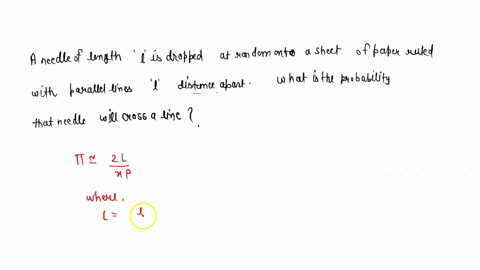 A needle of length 'l' is dropped at random onto a sheet of paper ruled
with parallel lines 'l' distance apart. What is the probability
that needle will cross a line ?
π ≅ 2L / xp
where,
L = l